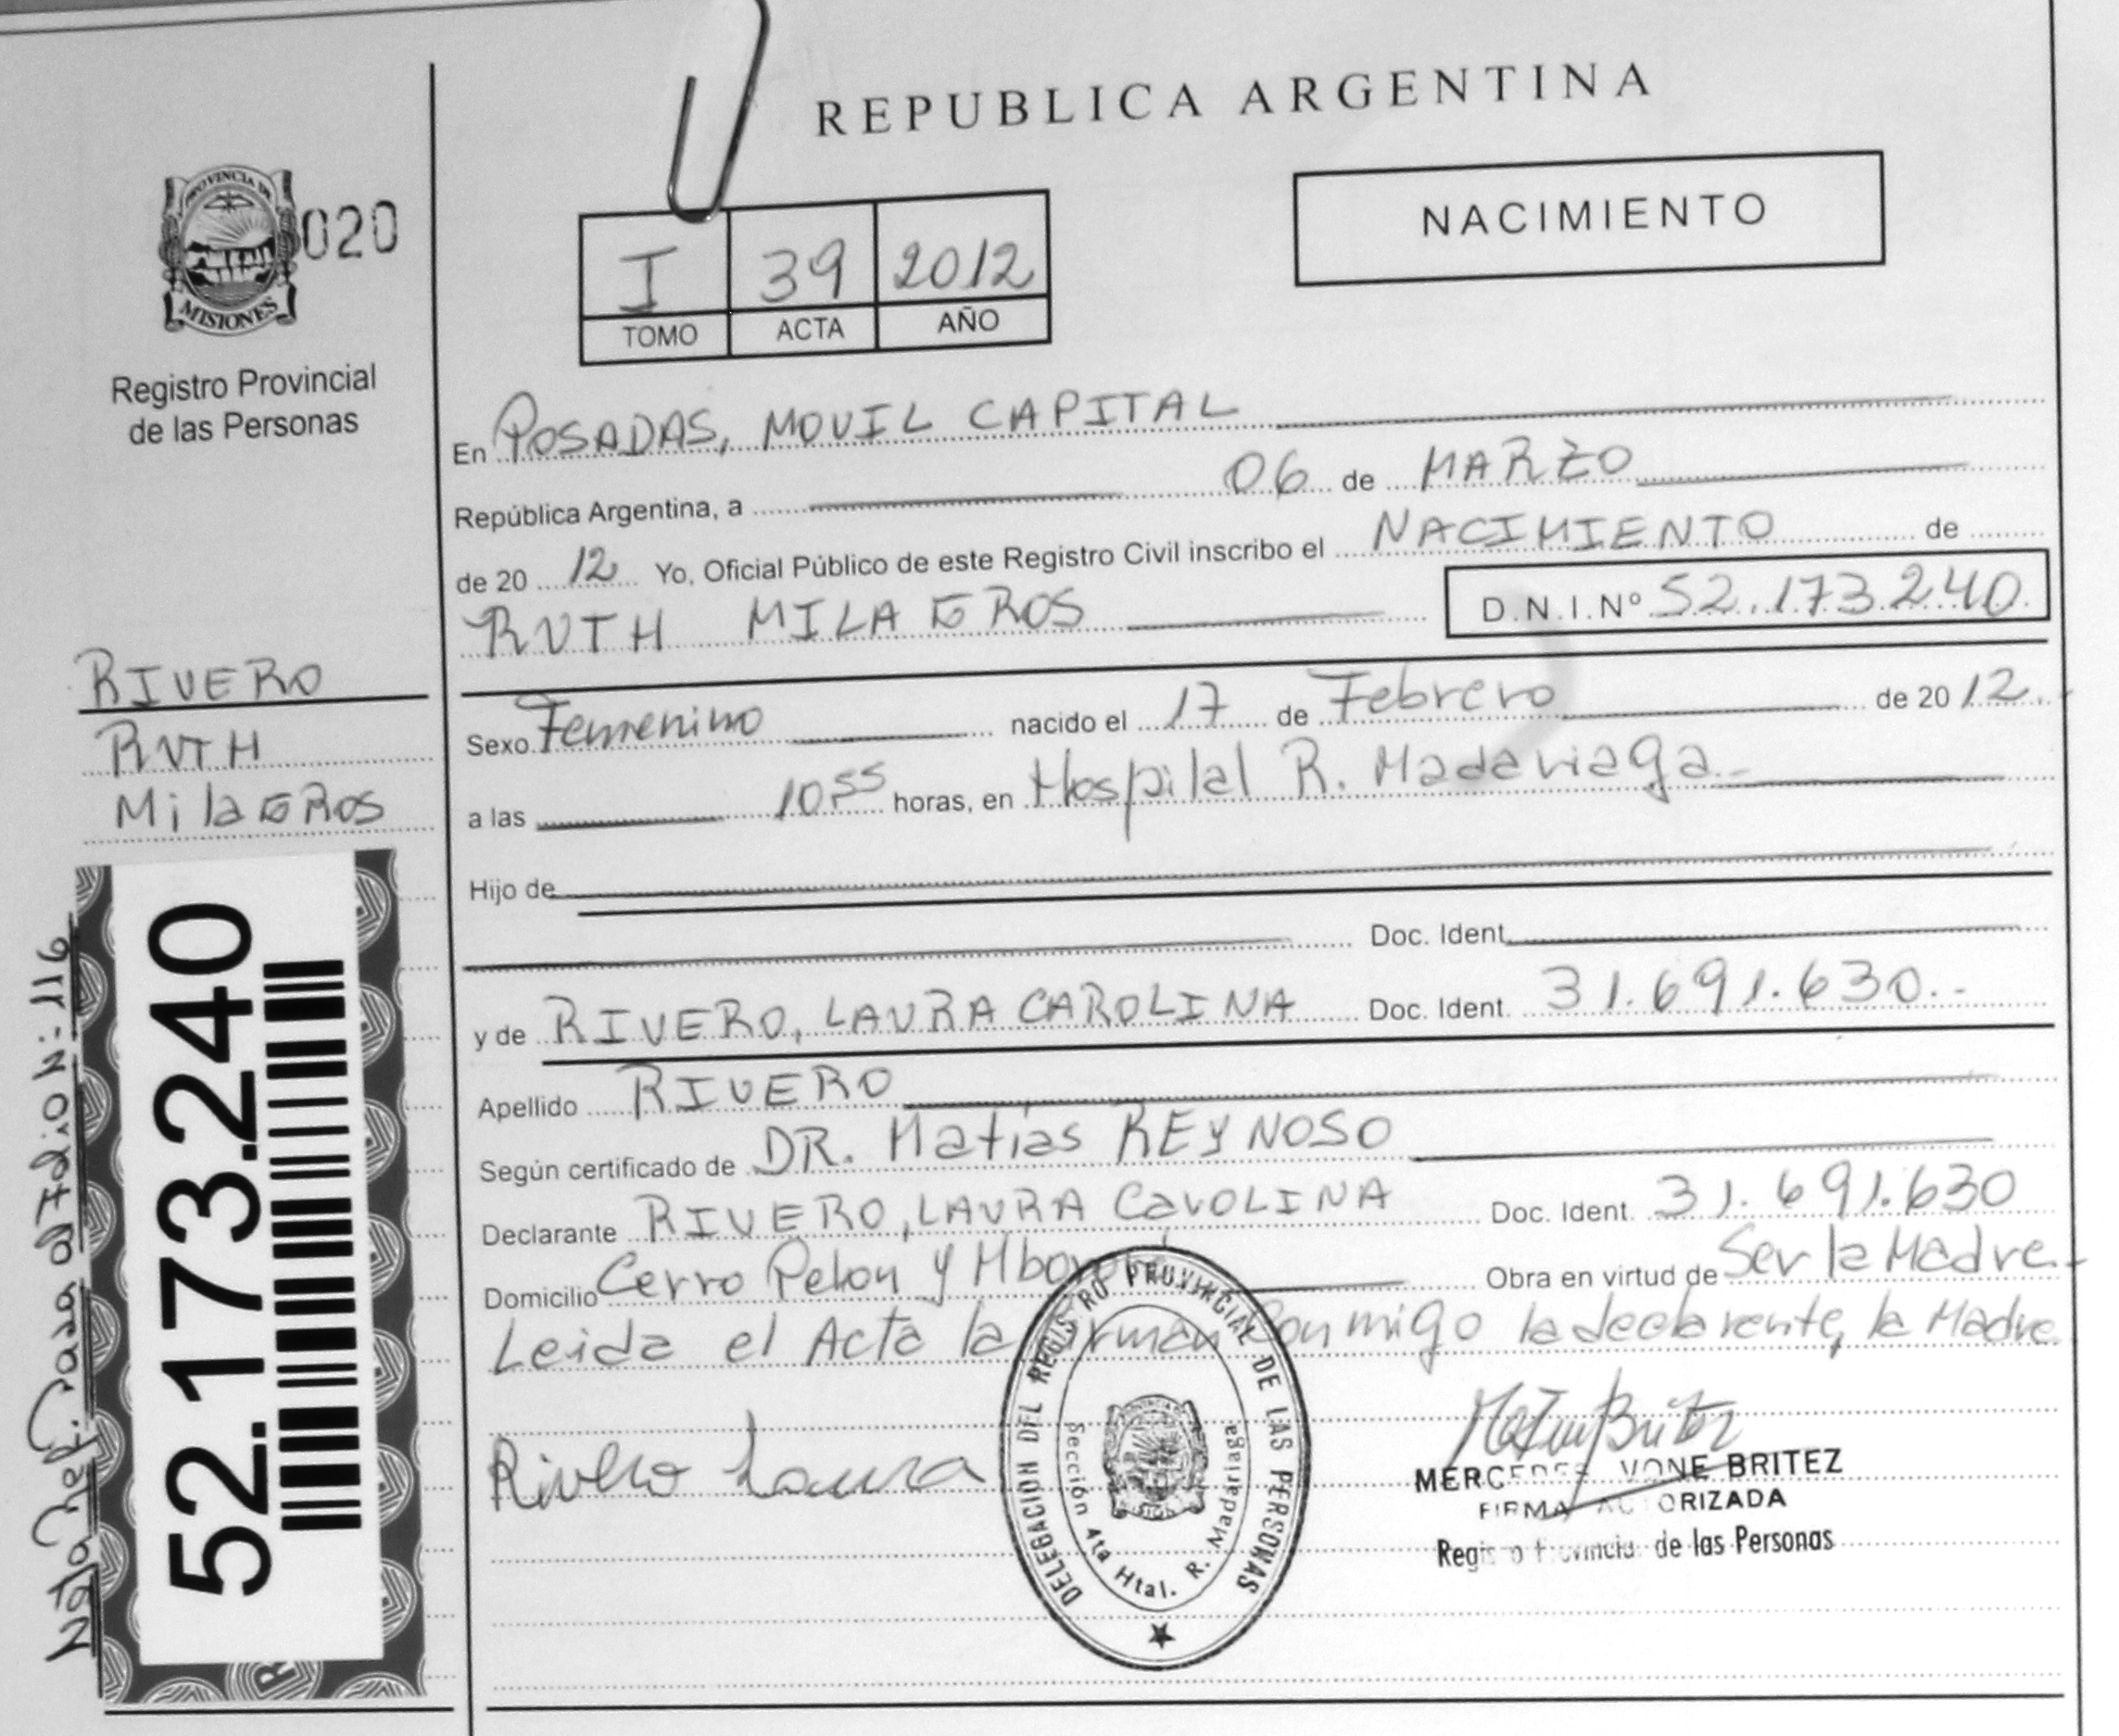 REPUBLICA ARGENTINA
PROVINCIA DE
MISIONES
020
Registro Provincial
de las Personas
I 39 2012
TOMO ACTA AÑO
NACIMIENTO
En POSADAS, MOVIL CAPITAL
República Argentina, a 06 de MARZO
de 20 12 Yo, Oficial Público de este Registro Civil inscribo el NACIMIENTO de
RUTH MILAGROS D.N.I.Nº 52.173.240
RIVERO
RUTH
MilaGROS
Sexo Femenino nacido el 17 de Febrero de 20 12.
a las 10,55 horas, en Hospital R. Madariaga.-
Hijo de
Doc. Ident.
y de RIVERO, LAURA CAROLINA Doc. Ident. 31.691.630.-
Apellido RIVERO
Según certificado de DR. Matías REYNOSO
Declarante RIVERO, LAURA CaroLINA Doc. Ident. 31.691.630
Domicilio Cerro Pelon y Obra en virtud de Ser la Madre.-
Leida el Acta la firman conmigo la declarante, la Madre.
Rivero Laura
DELEGACION DEL REGISTRO PROVINCIAL DE LAS PERSONAS
Sección 4ta Htal. R. Madariaga
MERCEDES IVONE BRITEZ
FIRMA AUTORIZADA
Registro Provincial de las Personas
52.173.240
Nota Ref. Pasa al Folio N: 116